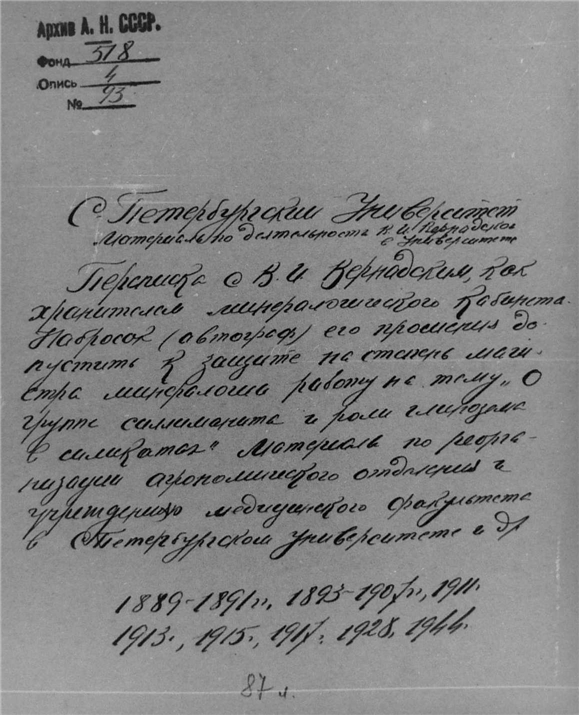 Архив А. Н. СССР.
Фонд 518
Опись 4
№ 93
С. Петербургский Университет
Материалы по деятельности В. И. Вернадского
в Университете
Переписка с В. И Вернадским, как
хранителем минералогического кабинета.
Набросок (автограф) его прошения до-
пустить к защите на степень маги-
стра минералогии работу на тему „О
группе силлиманита и роли глинозема
в силикатах“ Материалы по реорга-
низации агрономического отделения и
учреждению медицинского факультета
в С Петербургском университете и др
1889-1891гг, 1893-1907гг, 1911.
1913г., 1915, 1917г. 1928, 1944.
87 л.